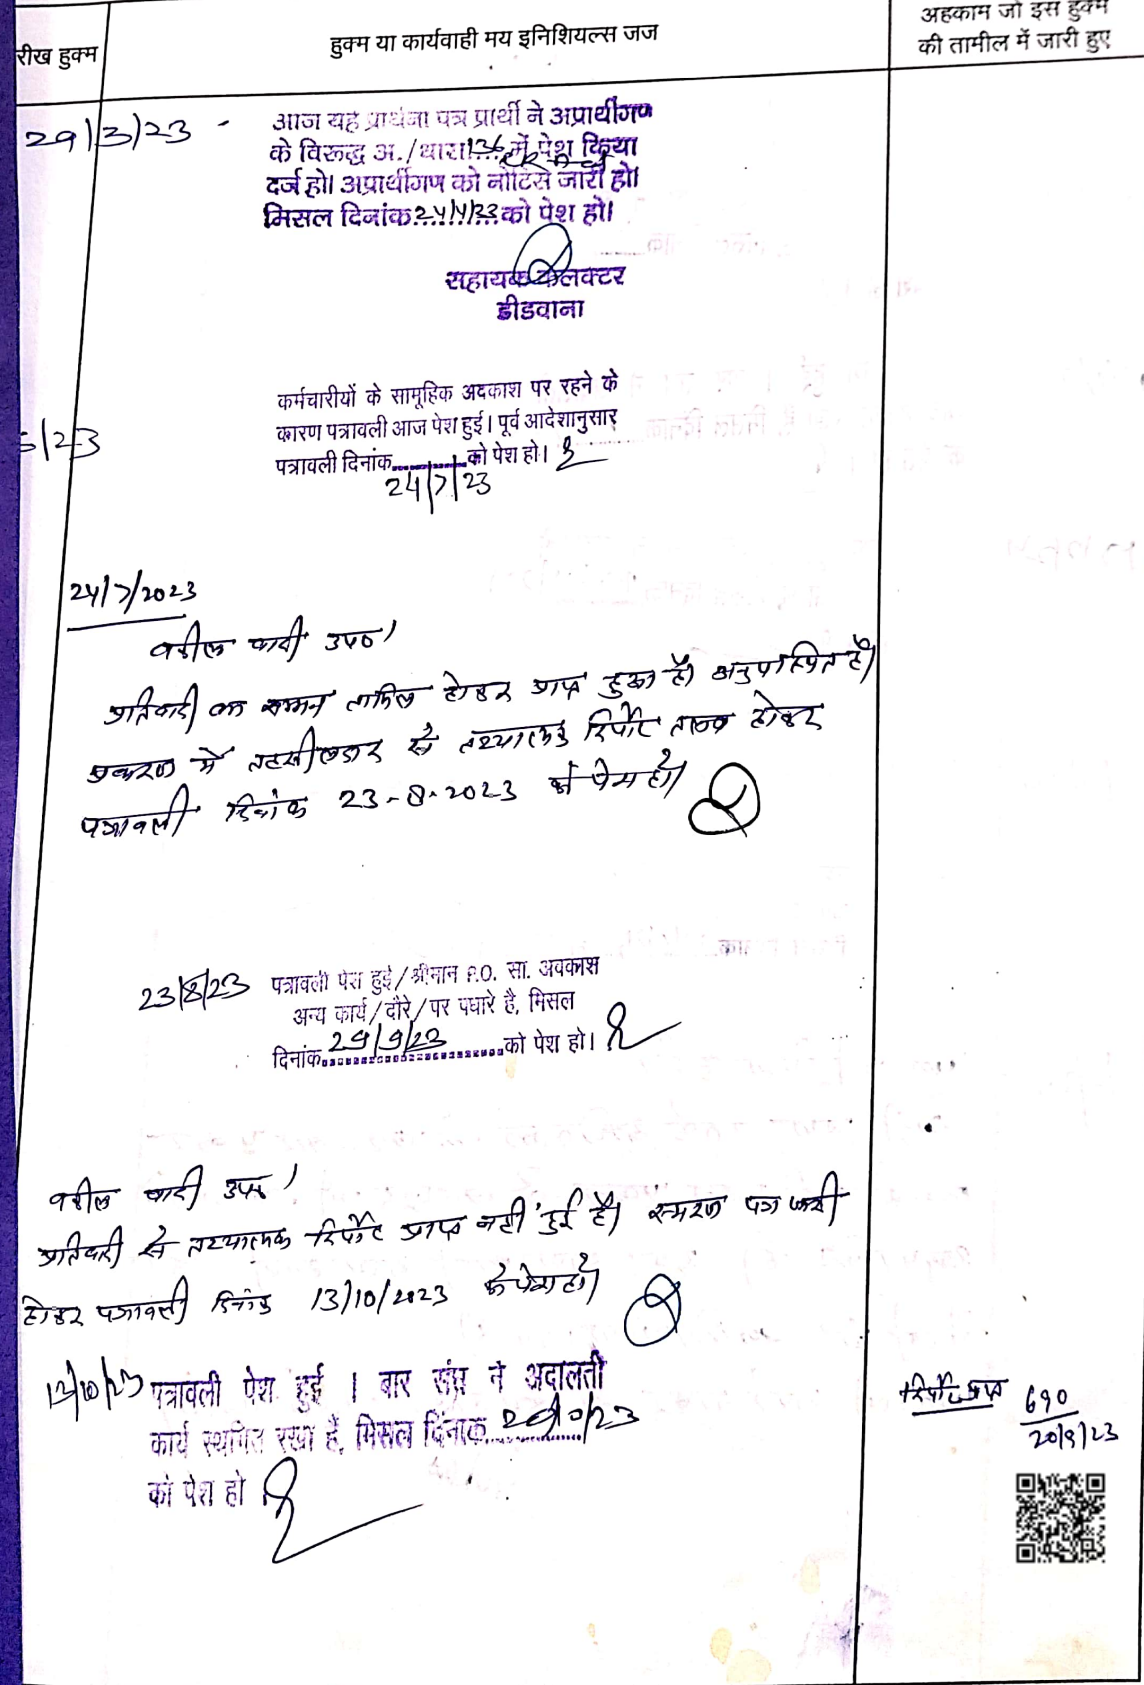 रीख हुक्म
हुक्म या कार्यवाही मय इनिशियल्स जज
अहकाम जो इस हुक्म
की तामील में जारी हुए
29/3/23 -
आज यह प्रार्थना पत्र प्रार्थी ने अप्रार्थीगण
के विरूद्ध अ./धारा 136 में पेश किया
दर्ज हो। अप्रार्थीगण को नोटिस जारी हो।
मिसल दिनांक 24/4/23 को पेश हो।
सहायक कलक्टर
डीडवाना
कर्मचारीयों के सामूहिक अवकाश पर रहने के
कारण पत्रावली आज पेश हुई। पूर्व आदेशानुसार
/23
पत्रावली दिनांक............को पेश हो।
24/7/23
24/7/2023
वकील वादी उप०।
प्रतिवादी का सम्मन तामिल होकर प्राप्त हुआ है। अनुपस्थित है।
प्रकरण में तहसीलदार से तथ्यात्मक रिर्पोट तलब होकर
पत्रावली दिनांक 23-8-2023 को पेश हो।
23/8/23 पत्रावली पेश हुई/श्रीमान P.O. सा. अवकाश
अन्य कार्य/दौरे/पर पधारे है, मिसल
दिनांक 29/9/23 को पेश हो।
वकील वादी उप०।
प्रतिवादी से तथ्यात्मक रिर्पोट प्राप्त नही हुई है। स्मरण पत्र जारी
होकर पत्रावली दिनांक 13/10/2023 को पेश हो।
13/10/23 पत्रावली पेश हुई । बार संघ ने अदालती
कार्य स्थगित रखा है, मिसल दिनांक
को पेश हो
रिर्पोट प्राप्त 690
20/9/23